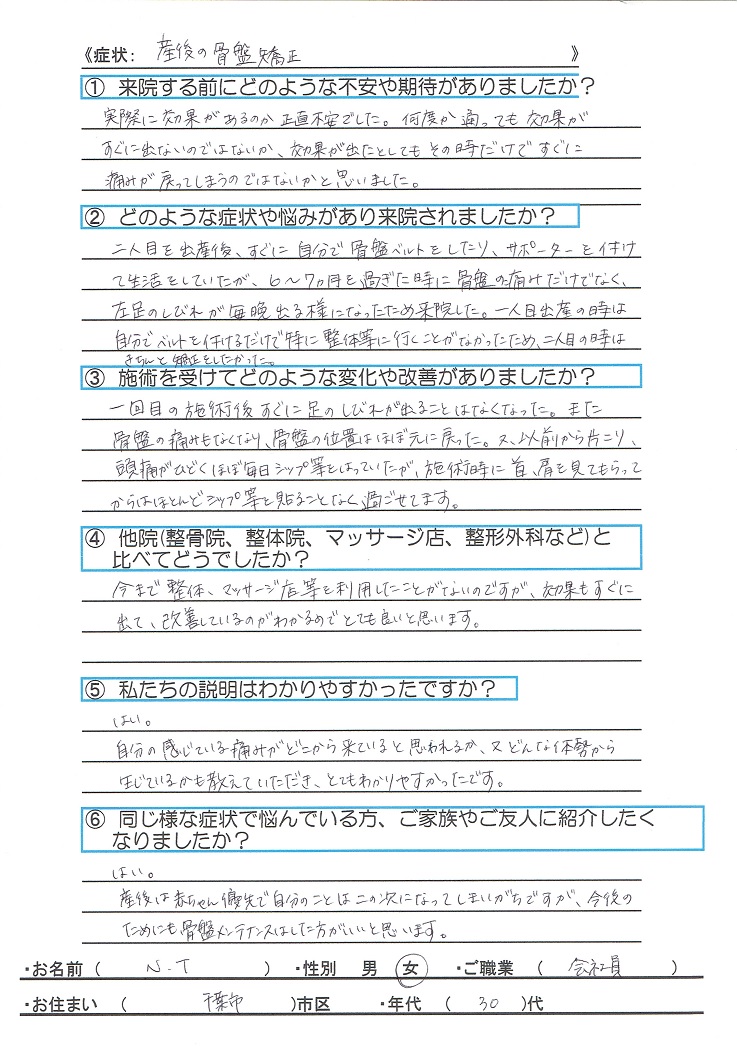 《症状： 産後の骨盤矯正 》
① 来院する前にどのような不安や期待がありましたか？
実際に効果があるのか正直不安でした。何度か通っても効果が
すぐに出ないのではないか、効果が出たとしてもその時だけですぐに
痛みが戻ってしまうのではないかと思いました。
② どのような症状や悩みがあり来院されましたか？
二人目を出産後、すぐに自分で骨盤ベルトをしたり、サポーターを付け
て生活をしていたが、6〜7ヵ月を過ぎた時に骨盤の痛みだけでなく、
左足のしびれが毎晩出る様になったため来院した。一人目出産の時は
自分でベルトを付けるだけで特に整体等に行くことがなかったため、二人目の時は
きちんと矯正をしたかった。
③ 施術を受けてどのような変化や改善がありましたか？
一回目の施術後すぐに足のしびれが出ることはなくなった。また
骨盤の痛みもなくなり、骨盤の位置はほぼ元に戻った。又、以前から片こり、
頭痛がひどくほぼ毎日シップ等をはっていたが、施術時に首、肩を見てもらって
からはほとんどシップ等を貼ることなく過ごせてます。
④ 他院(整骨院、整体院、マッサージ店、整形外科など)と
比べてどうでしたか？
今まで整体、マッサージ店等を利用したことがないのですが、効果もすぐに
出て、改善しているのがわかるのでとても良いと思います。
⑤ 私たちの説明はわかりやすかったですか？
はい。
自分の感じている痛みがどこから来ていると思われるか、又どんな体勢から
生じているかも教えていただき、とてもわかりやすかったです。
⑥ 同じ様な症状で悩んでいる方、ご家族やご友人に紹介したく
なりましたか？
はい。
産後は赤ちゃん優先で自分のことは二の次になってしまいがちですが、今後の
ためにも骨盤メンテナンスはした方がいいと思います。
・お名前（ N.T ） ・性別 男 女 ・ご職業（ 会社員 ）
・お住まい（ 千葉市 ）市区 ・年代（ 30 ）代